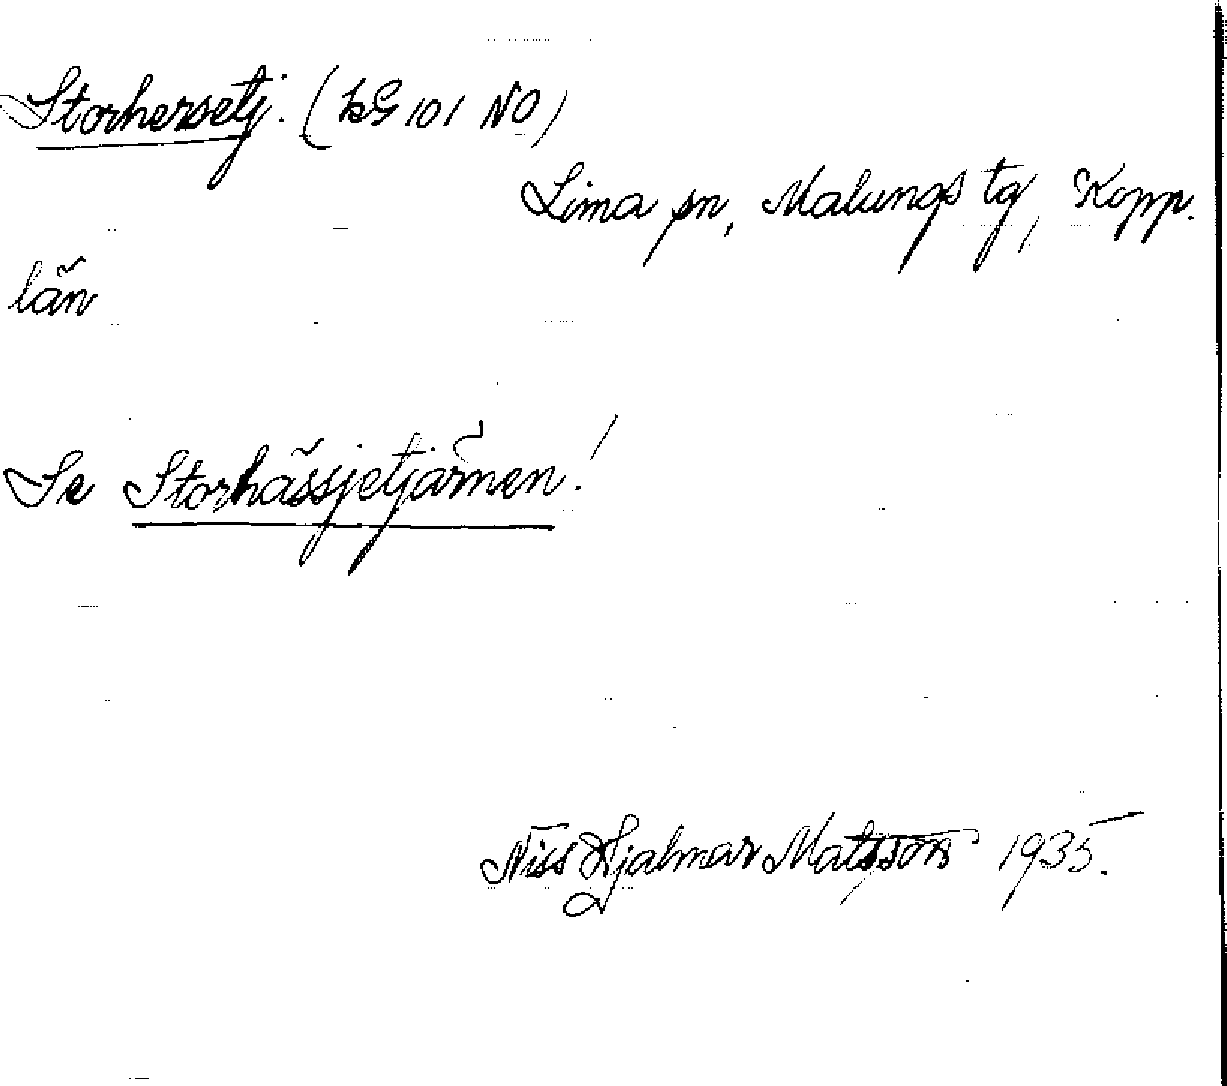 Storhersetj. (kG 101 NO)
Lima sn, Malungs tg, Kopp.
län
Se Storhässjetjärnen!
Niss Hjalmar Matsson 1935.